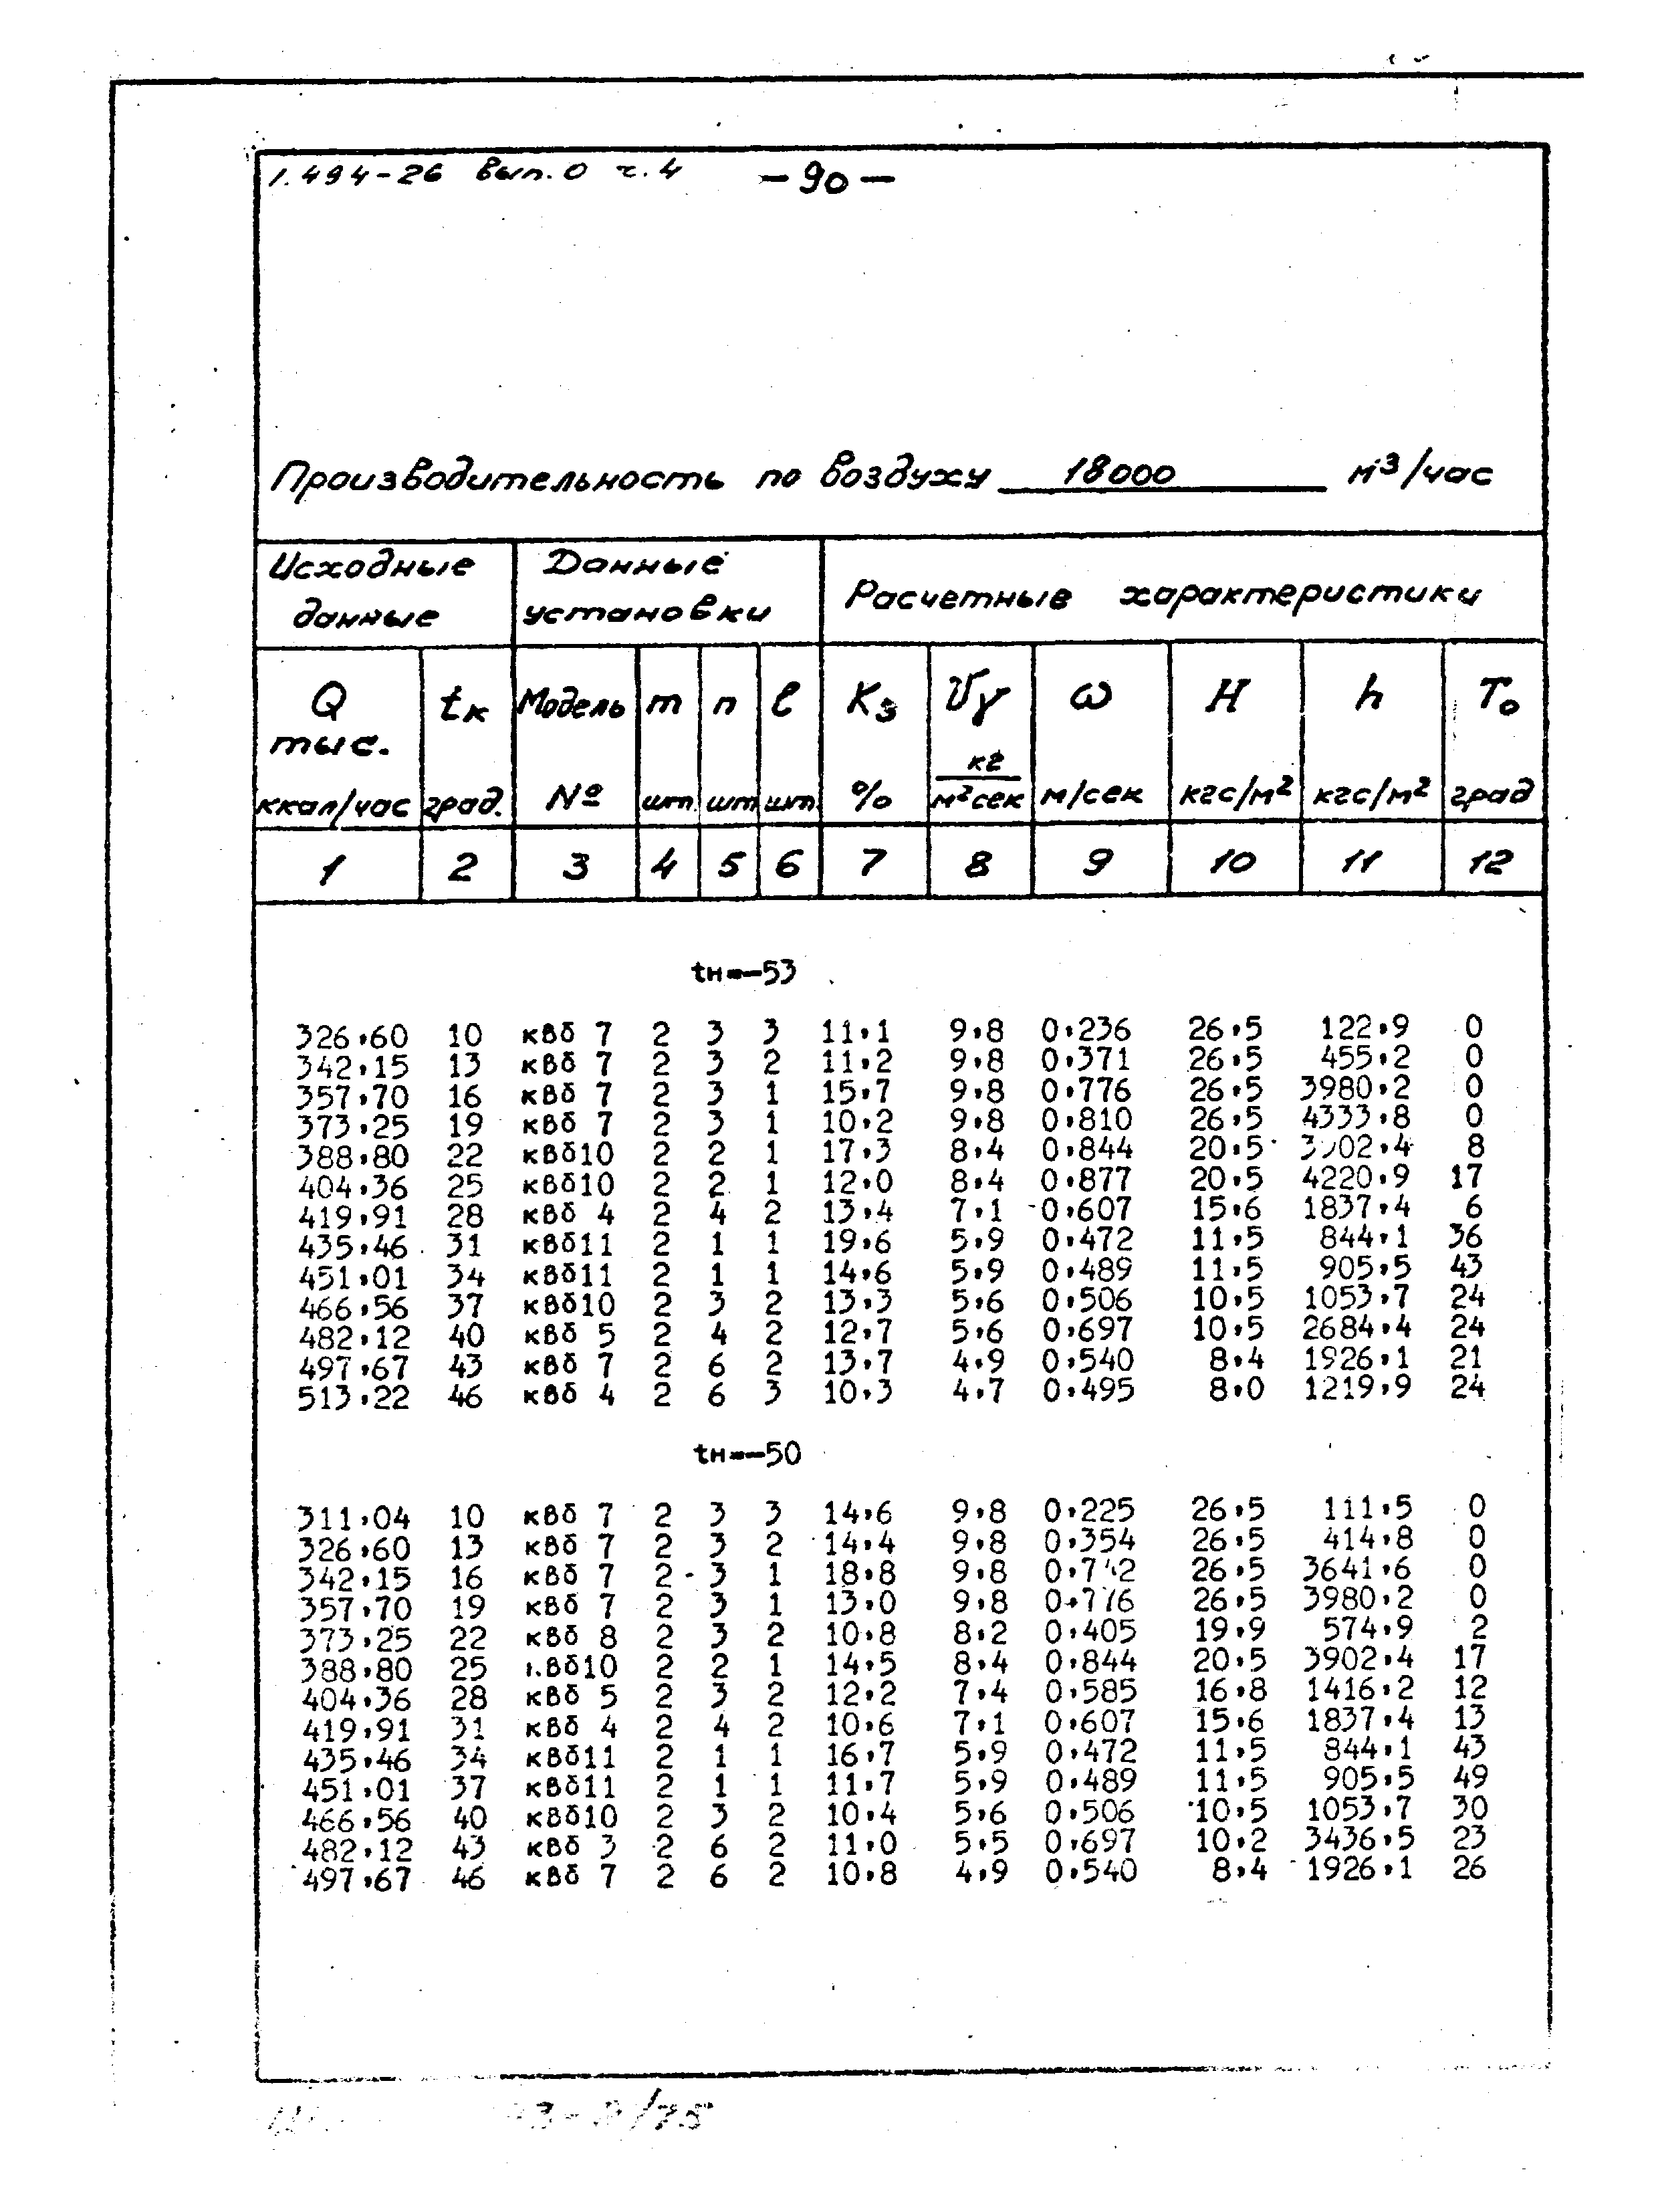 1.494-26 Вып.0 ч.4 -90-
Производительность по воздуху 18000 м³/час
Исходные данные Данные установки Расчетные характеристики
Q tк Модель m n l Kз Vγ ω H h To
тыс. ккал/час град. № шт. шт шт % кг/м²сек м/сек кгс/м² кгс/м² град
1 2 3 4 5 6 7 8 9 10 11 12
tн=-53
326,60 10 квб 7 2 3 3 11,1 9,8 0,236 26,5 122,9 0
342,15 13 квб 7 2 3 2 11,2 9,8 0,371 26,5 455,2 0
357,70 16 квб 7 2 3 1 15,7 9,8 0,776 26,5 3980,2 0
373,25 19 квб 7 2 3 1 10,2 9,8 0,810 26,5 4333,8 0
388,80 22 квб10 2 2 1 17,3 8,4 0,844 20,5 8
404,36 25 квб10 2 2 1 12,0 8,4 0,877 20,5 4220,9 17
419,91 28 квб 4 2 4 2 13,4 7,1 0,607 15,6 1837,4 6
435,46 31 квб11 2 1 1 19,6 5,9 0,472 11,5 844,1 36
451,01 34 квб11 2 1 1 14,6 5,9 0,489 11,5 905,5 43
466,56 37 квб10 2 3 2 13,3 5,6 0,506 10,5 1053,7 24
482,12 40 квб 5 2 4 2 12,7 5,6 0,697 10,5 2684,4 24
497,67 43 квб 7 2 6 2 13,7 4,9 0,540 8,4 1926,1 21
513,22 46 квб 4 2 6 3 10,3 4,7 0,495 8,0 1219,9 24
tн=-50
311,04 10 квб 7 2 3 3 14,6 9,8 0,225 26,5 111,5 0
326,60 13 квб 7 2 3 2 14,4 9,8 0,354 26,5 414,8 0
342,15 16 квб 7 2 3 1 18,8 9,8 26,5 3641,6 0
357,70 19 квб 7 2 3 1 13,0 9,8 0,776 26,5 3980,2 0
373,25 22 квб 8 2 3 2 10,8 8,2 0,405 19,9 574,9 2
388,80 25 квб10 2 2 1 14,5 8,4 0,844 20,5 3902,4 17
404,36 28 квб 5 2 3 2 12,2 7,4 0,585 16,8 1416,2 12
419,91 31 квб 4 2 4 2 10,6 7,1 0,607 15,6 1837,4 13
435,46 34 квб11 2 1 1 16,7 5,9 0,472 11,5 844,1 43
451,01 37 квб11 2 1 1 11,7 5,9 0,489 11,5 905,5 49
466,56 40 квб10 2 3 2 10,4 5,6 0,506 10,5 1053,7 30
482,12 43 квб 3 2 6 2 11,0 5,5 0,697 10,2 3436,5 23
497,67 46 квб 7 2 6 2 10,8 4,9 0,540 8,4 1926,1 26